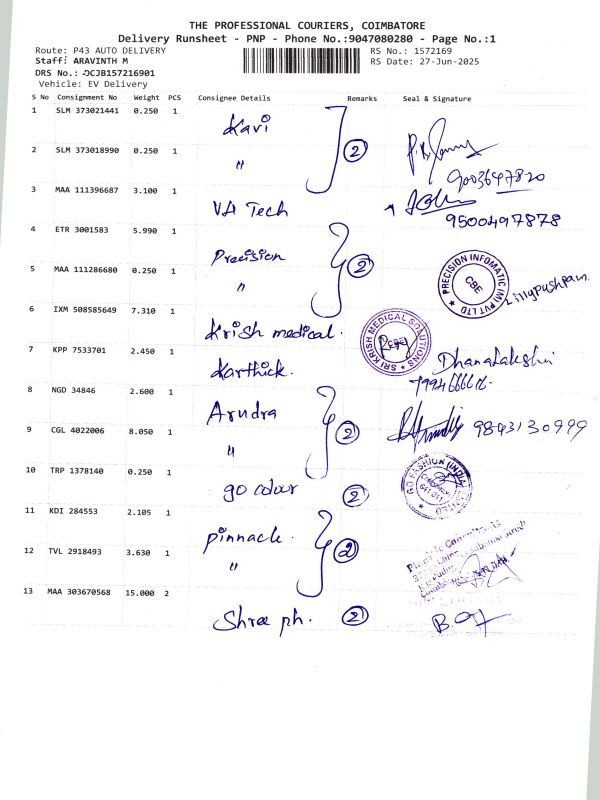 THE PROFESSIONAL COURIERS, COIMBATORE
Delivery Runsheet - PNP - Phone No.:9047080280 - Page No.:1
Route: P43 AUTO DELIVERY
RS No.: 1572169
Staff: ARAVINTH M
RS Date: 27-Jun-2025
DRS No.: DCJB157216901
Vehicle: EV Delivery
S No Consignment No Weight PCS Consignee Details Remarks Seal & Signature
1 SLM 373021441 0.250 1 Kavi 2
2 SLM 373018990 0.250 1 " 9003647820
3 MAA 111396687 3.100 1 VA Tech 9500497878
4 ETR 3001583 5.990 1 Precision 2
5 MAA 111286680 0.250 1 " PRECISION INFOMATIC (M) PVT LTD CBE Lillypushpam
6 IXM 508585649 7.310 1 Krish medical. SRI KRISH MEDICAL SOLUTIONS
7 KPP 7533701 2.450 1 Karthick. Dhanalakshmi
8 NGD 34846 2.600 1 Arudra
9 CGL 4022006 8.050 1 " 2 9843130999
10 TRP 1378140 0.250 1 go colour 2 GO FASHION (INDIA) LIMITED
11 KDI 284553 2.105 1 pinnacle.
12 TVL 2918493 3.630 1 " 2
13 MAA 303670568 15.000 2 Shree ph. 2